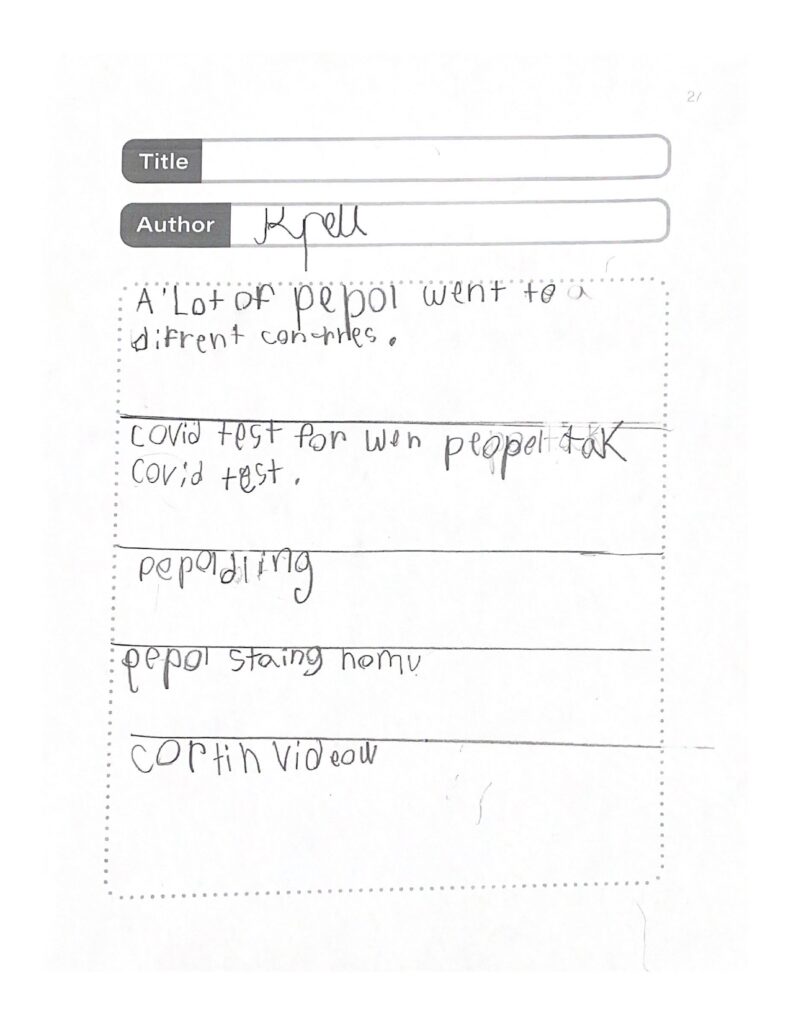 21
Title
Author Kpell
A Lot of pepol went to a
difrent contries.
covid test for wen peopel tak
covid test.
pepol diing
pepol staing home
cortin videow